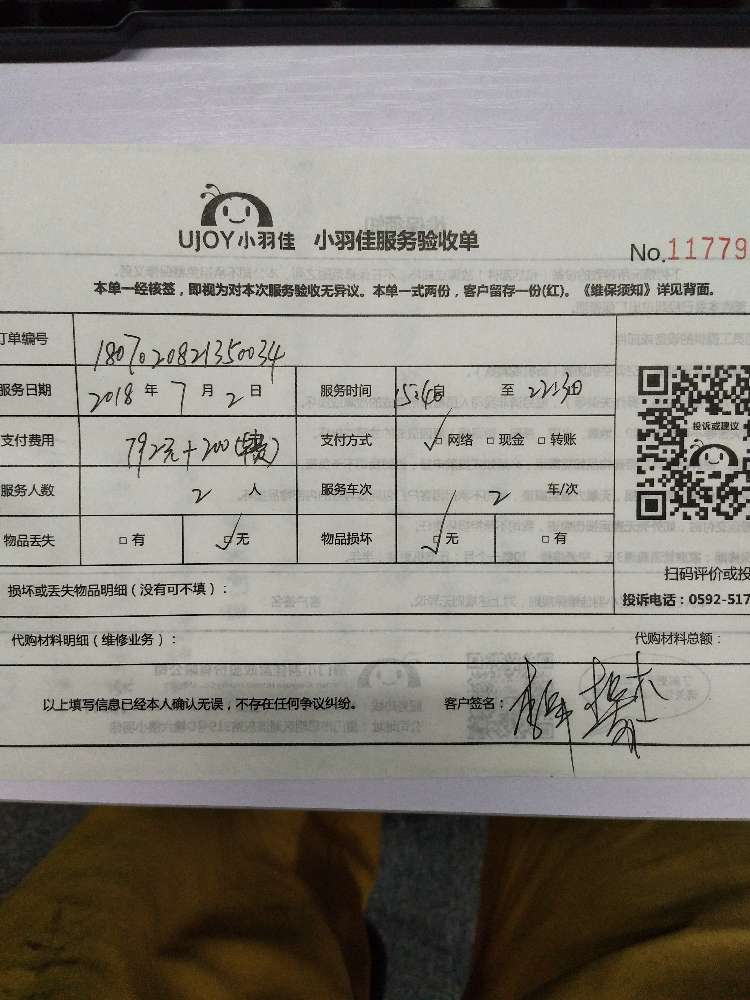 UJOY小羽佳 小羽佳服务验收单
No.11779
本单一经核签，即视为对本次服务验收无异议。本单一式两份，客户留存一份(红)。《维保须知》详见背面。
订单编号 1807020821350034
服务日期 2018 年 7 月 2 日 服务时间 至
支付费用 792元+200 支付方式 √□网络 □现金 □转账
服务人数 2 人 服务车次 2 车/次
物品丢失 □有 √□无 物品损坏 √□无 □有
投诉或建议
扫码评价或投
损坏或丢失物品明细（没有可不填）：
投诉电话：0592-517
代购材料明细（维修业务）：
代购材料总额：
以上填写信息已经本人确认无误，不存在任何争议纠纷。 客户签名：